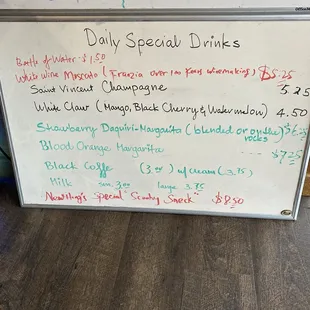 Daily Special Drinks
Bottle of Water: $1.50
White wine Moscato (Franzia over 100 years winemaking) $5.25
Saint Vincent Champagne 5.25
White Claw (Mango, Black Cherry & Watermelon) 4.50
Strawberry Daquiri-Margarita (blended or on the rocks
Blood Orange Margarita --- $7.25
Black Coffe (3.00) w/cream (3.75)
Milk sm. 3.00 large 3.75
Special $8.50